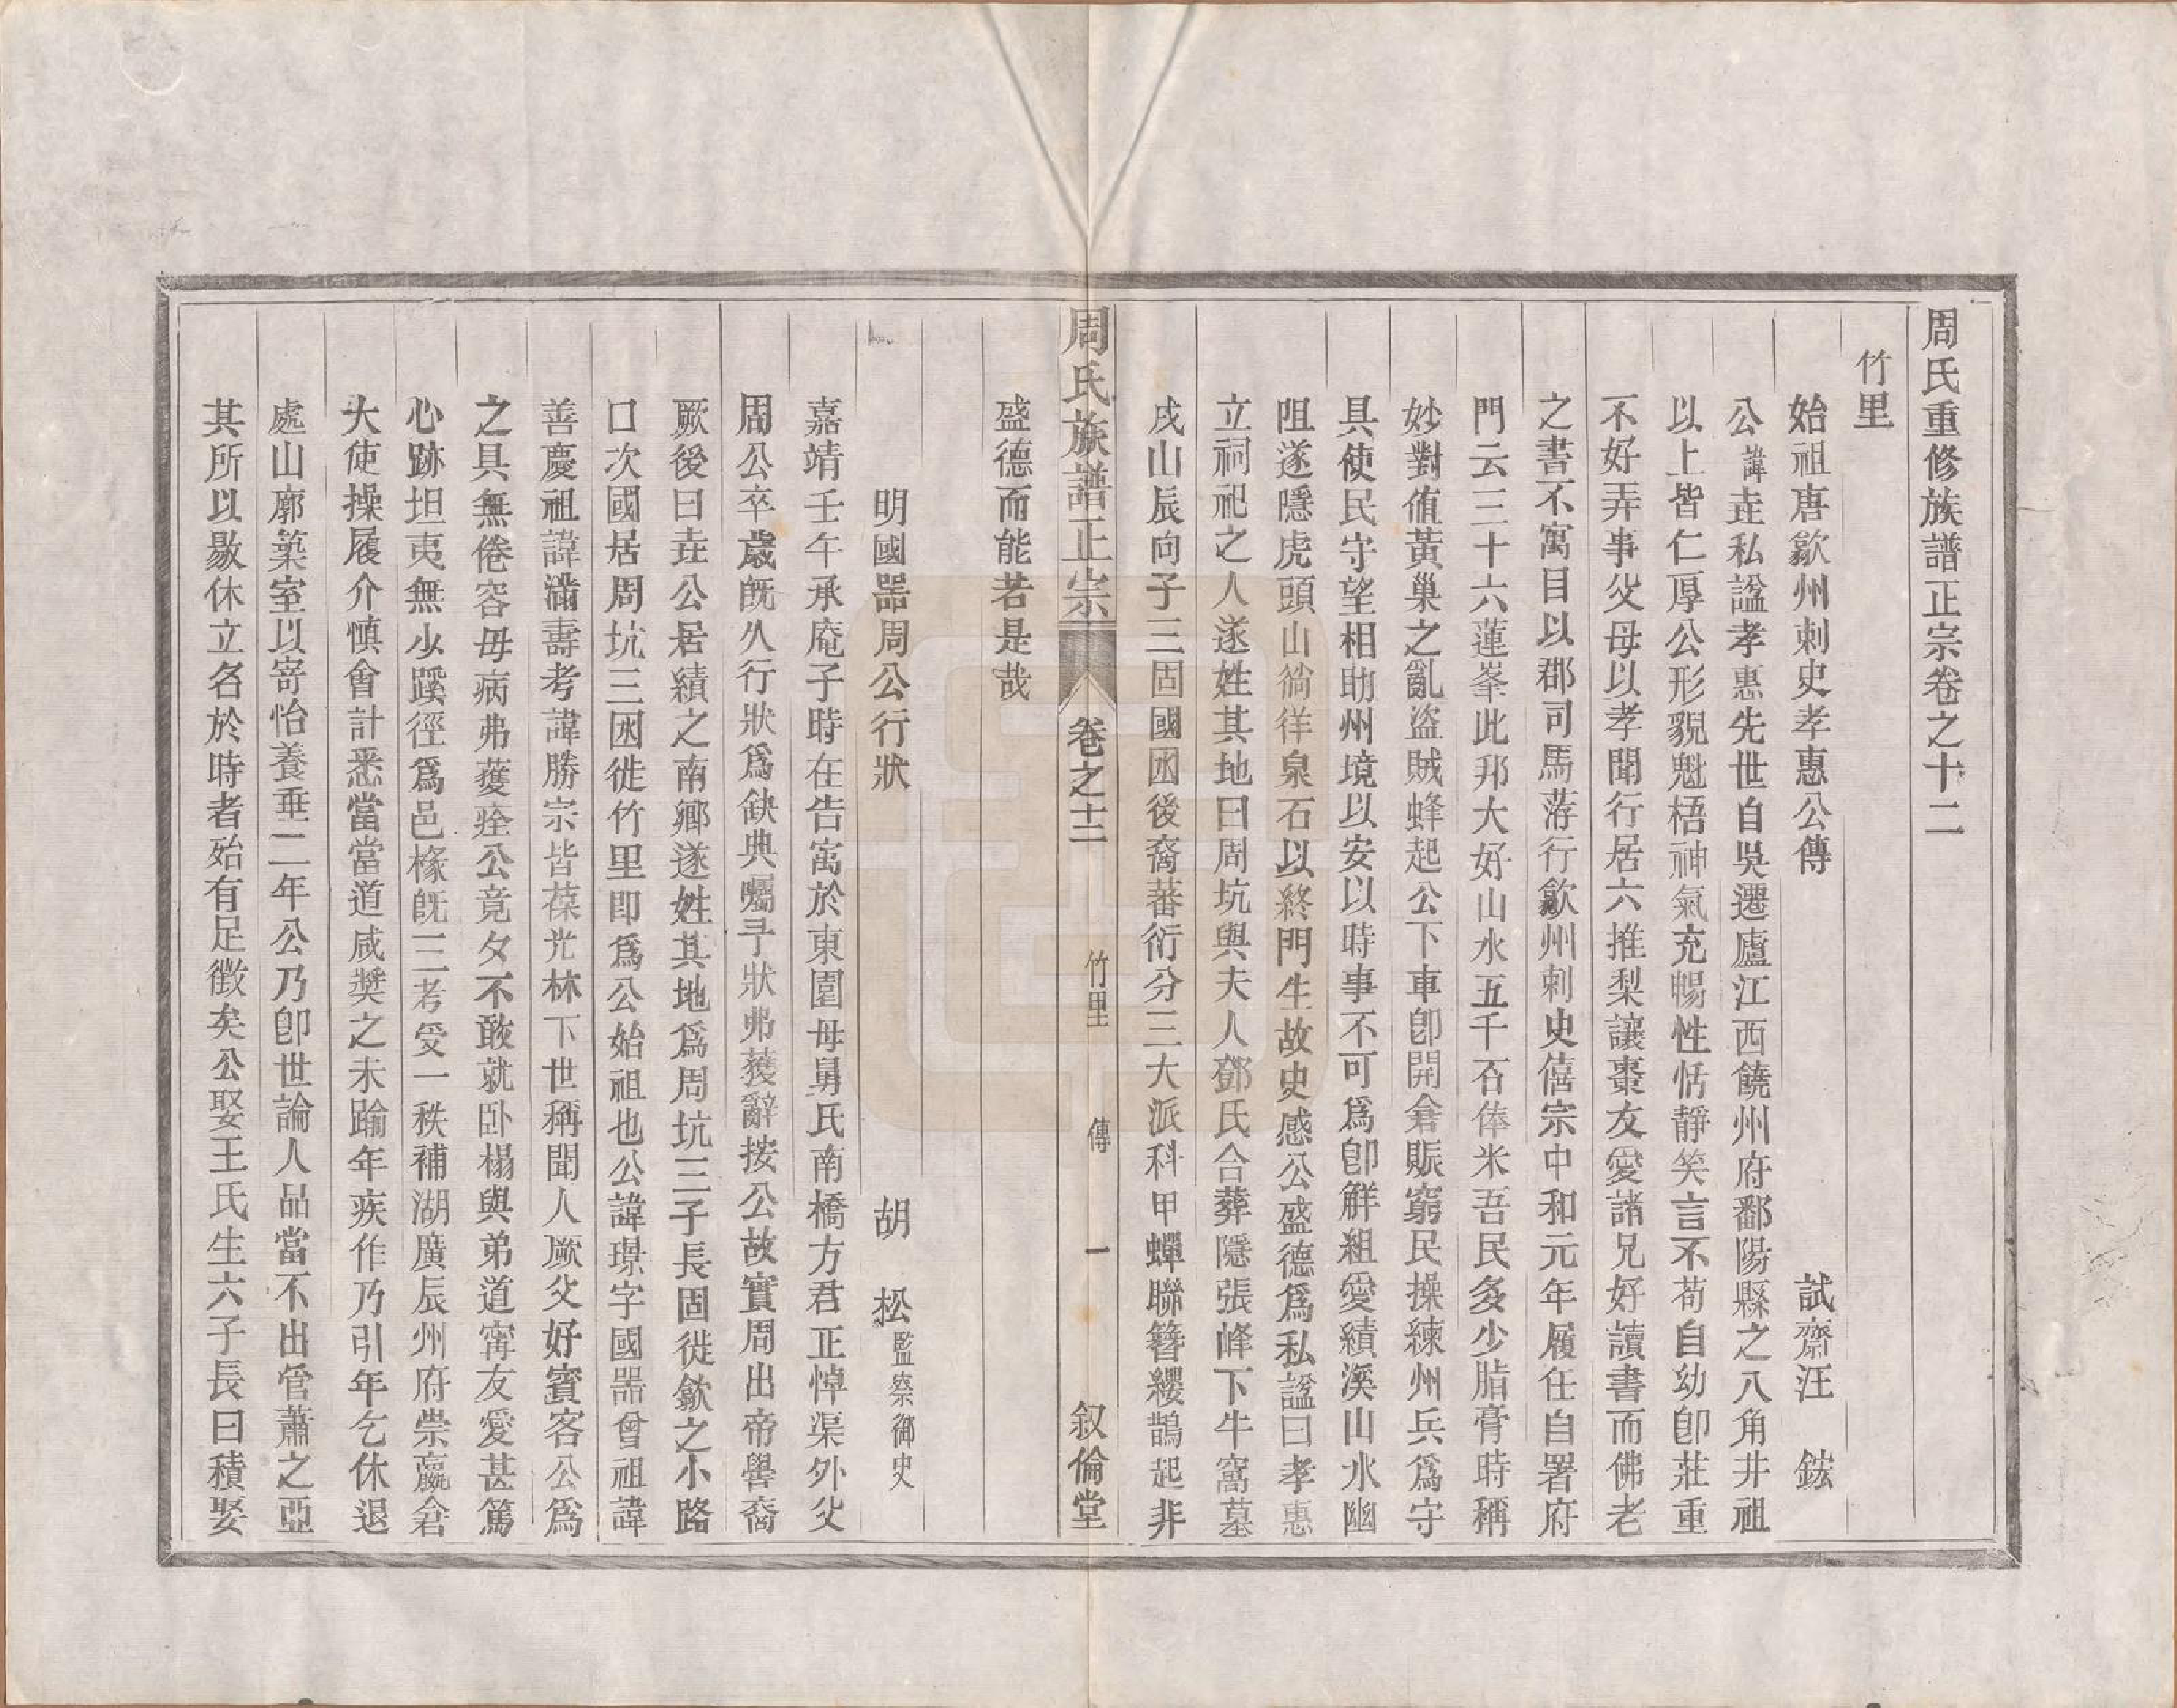 周氏重修族譜正宗卷之十二
竹里
始祖唐歙州刺史孝惠公傳 試齋汪 鋐
公諱垚私諡孝惠先世自吳遷廬江西饒州府鄱陽縣之八角井祖
以上皆仁厚公形貌魁梧神氣充暢性恬靜笑言不苟自幼卽莊重
不好弄事父母以孝聞行居六推梨讓棗友愛諸兄好讀書而佛老
之書不寓目以郡司馬荐行歙州刺史僖宗中和元年履任自署府
門云三十六蓮峯此邦大好山水五千石俸米吾民多少脂膏時稱
妙對值黃巢之亂盜賊蜂起公下車卽開倉賑窮民操練州兵爲守
具使民守望相助州境以安以時事不可爲卽解組愛績溪山水幽
阻遂隱虎頭山徜徉泉石以終門生故史感公盛德爲私諡曰孝惠
立祠祀之人遂姓其地曰周坑與夫人鄧氏合葬隱張峰下牛窩墓
戌山辰向子三固國囦後裔蕃衍分三大派科甲蟬聯簪纓鵲起非
盛德而能若是哉
周氏族譜正宗 卷之十二 竹里 傳 一 叙倫堂
明國器周公行狀 胡 松監察御史
嘉靖壬午承庵子時在告寓於東園母舅氏南橋方君正悼渠外父
周公卒歲旣久行狀爲缺典囑予狀弗獲辭按公故實周出帝嚳裔
厥後曰垚公居績之南鄉遂姓其地爲周坑三子長固徙歙之小路
口次國居周坑三囦徙竹里即爲公始祖也公諱璟字國器曾祖諱
善慶祖諱滿壽考諱勝宗皆葆光林下世稱聞人厥父好賓客公爲
之具無倦容毋病弗蓌痊公竟夕不敢就卧榻與弟道甯友愛甚篤
心跡坦夷無少蹊徑爲邑椽旣三考受一秩補湖廣辰州府崇嬴倉
大使操履介愼會計悉當當道咸奬之未踰年疾作乃引年乞休退
處山廓築室以寄怡養垂二年公乃卽世論人品當不出管蕭之亞
其所以敭休立名於時者殆有足徵矣公娶王氏生六子長曰積娶